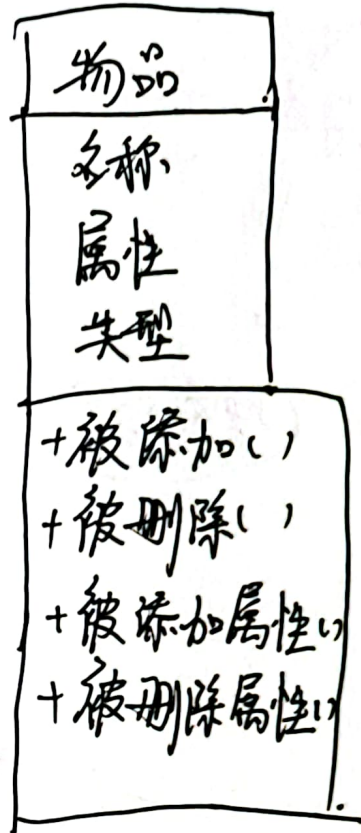 物品
名称
属性
类型
+被添加()
+被删除()
+被添加属性()
+被删除属性()